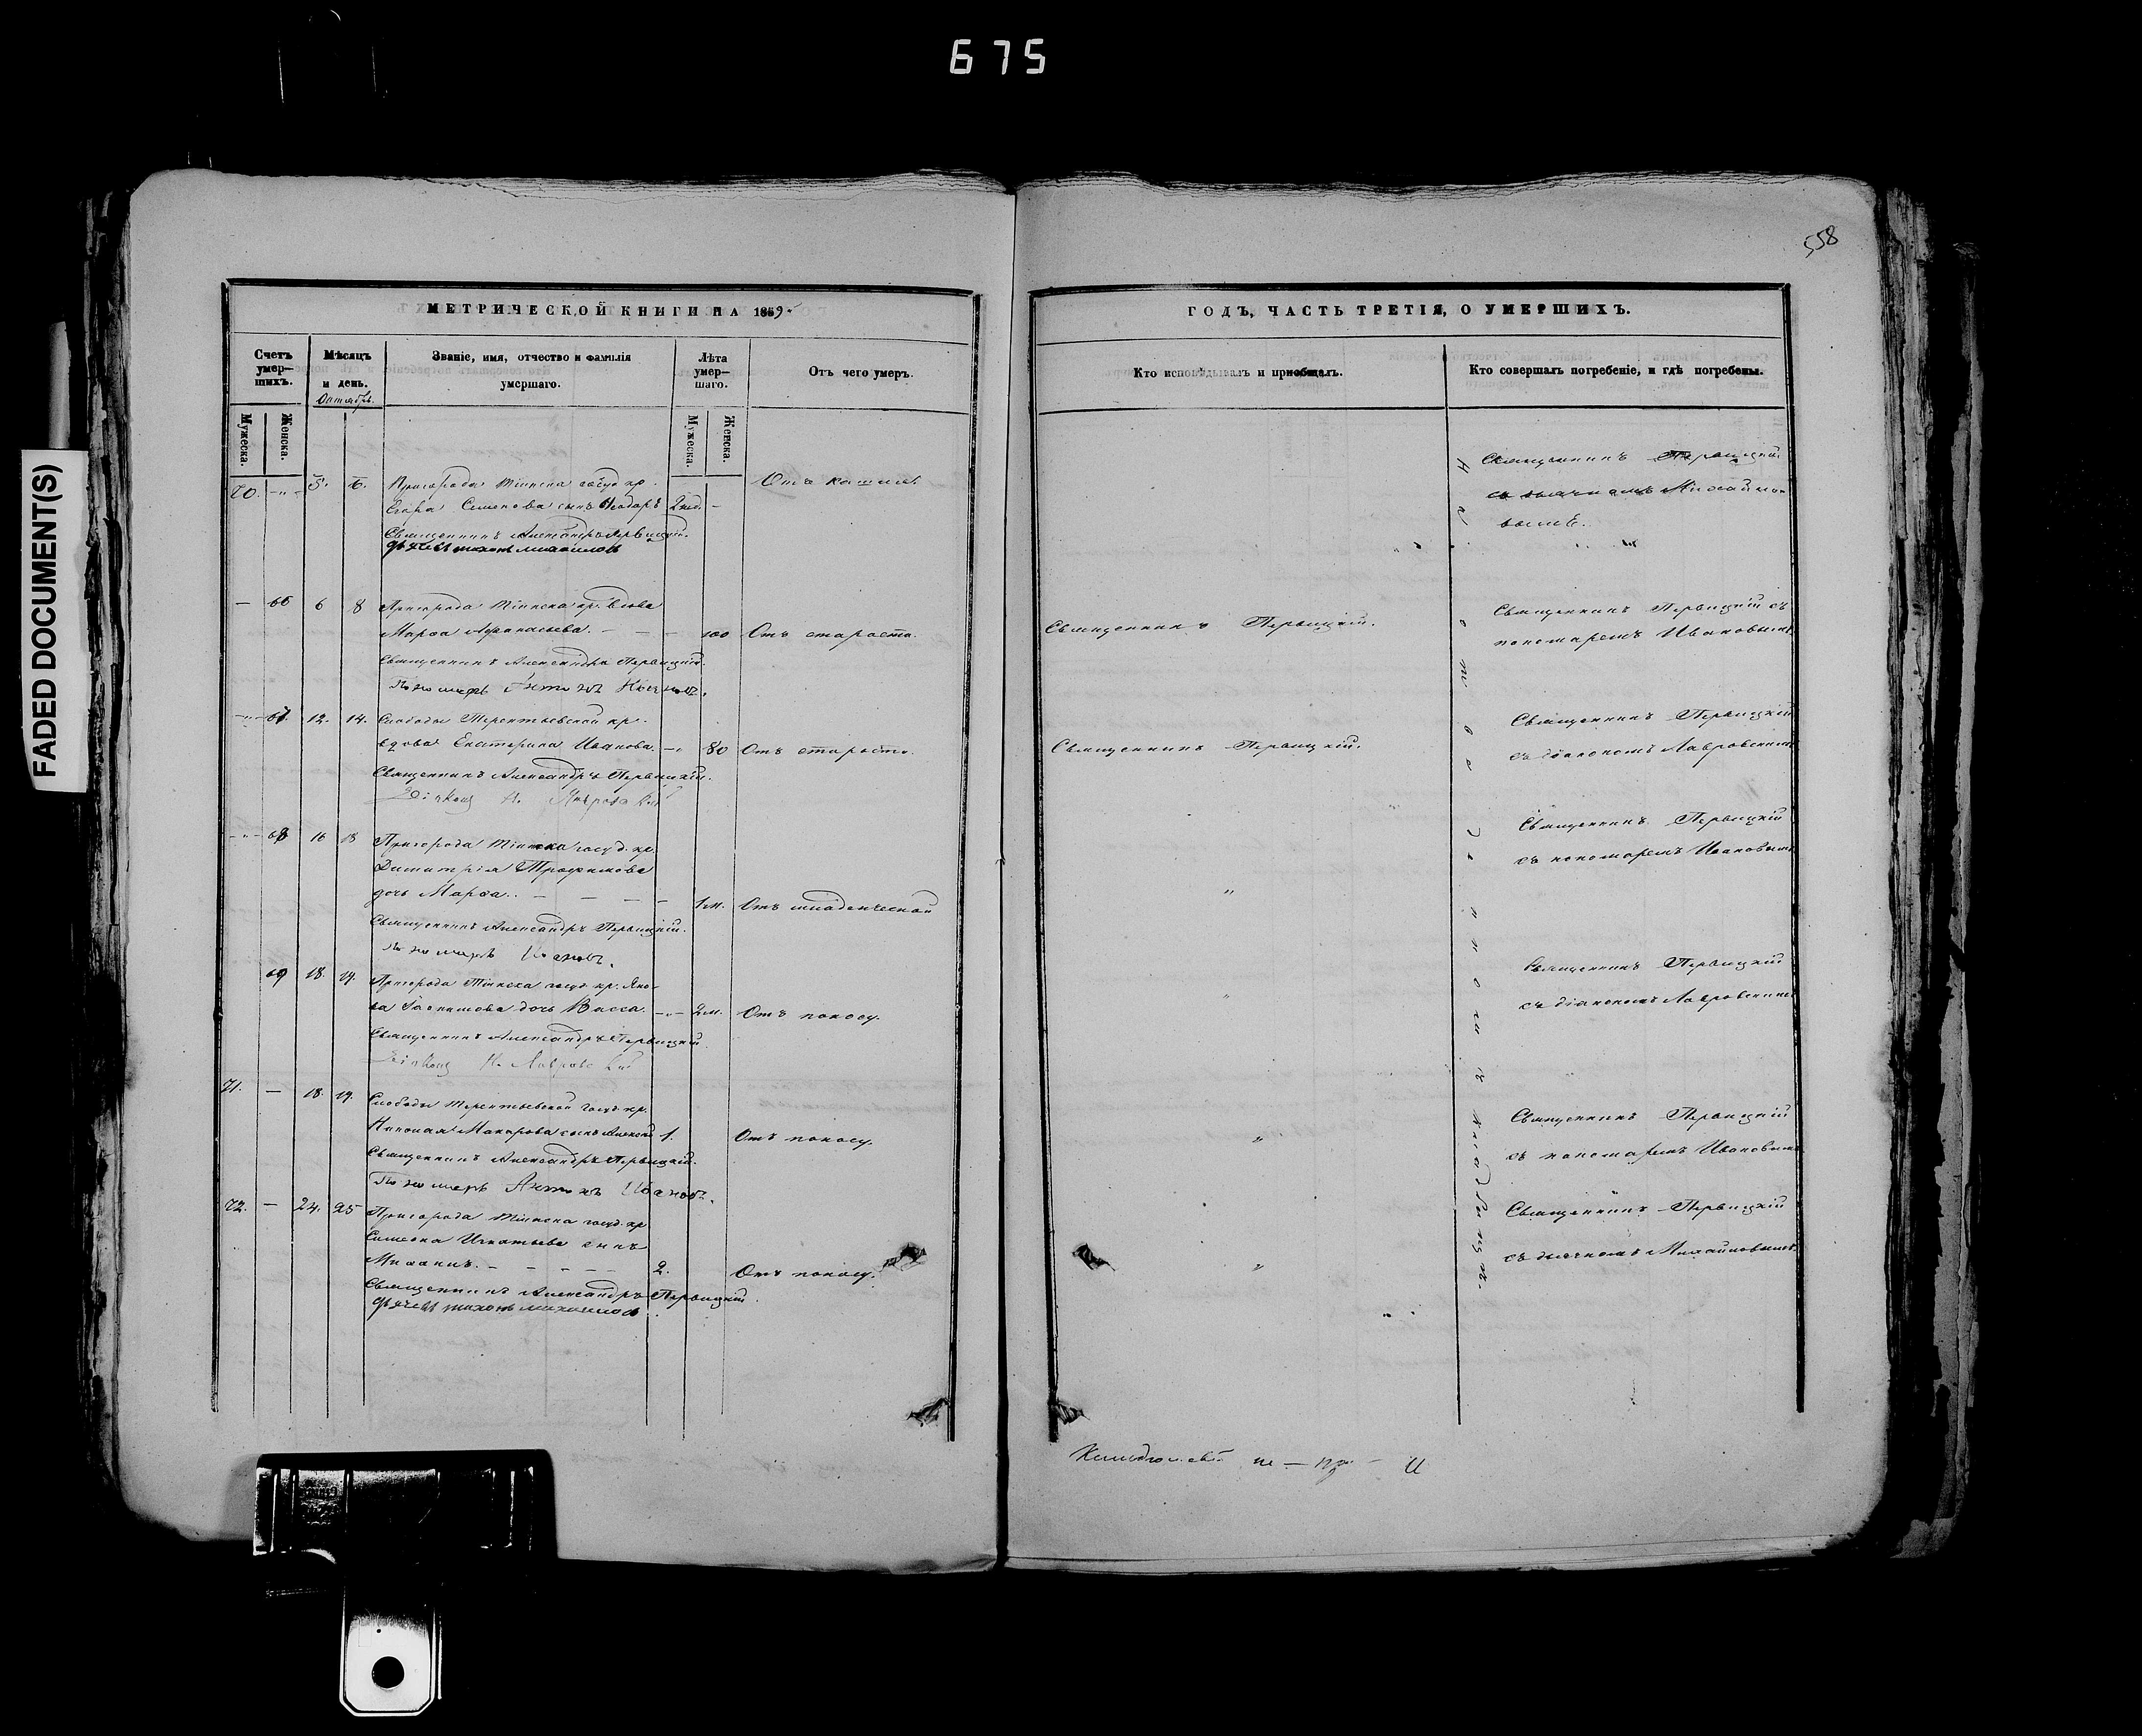 675
FADED DOCUMENT(S)
558
МЕТРИЧЕСКОЙ КНИГИ НА 1859
ГОДЪ, ЧАСТЬ ТРЕТІЯ, О УМЕРШИХЪ.
Счетъ умер–шихъ.
Мѣсяцъ и день.
Октябрь.
Званіе, имя, отчество и фамилія умершаго.
Лѣта умер–шаго.
Отъ чего умеръ.
Кто исповѣдывалъ и пріобщалъ.
Кто совершалъ погребеніе, и гдѣ погребены.
Мужеска.
Женска.
Мужеска.
Женска.
70. 5. 6. Пригорода Тіинска госуд кр.
Егора Семенова сынъ Ѳеодоръ 2 нед. Отъ кашля.
Священникъ Александръ Первицкій.
дьячекъ тихонъ михаиловъ
Священникъ Первицкій
съ дьячкомъ Михайло-
вымъ.
66 6 8 Пригорода Тіинска кр. вдова
Марѳа Аѳанасьева. 100 Отъ старости.
Священникъ Первицкій.
Священникъ Александръ Первицкій.
Пономарь Антонъ Ивановъ.
Священникъ Первицкій съ
пономаремъ Ивановымъ
67. 12. 14. Слободы Терентьевской кр.
вдова Екатерина Иванова. 80 Отъ старости.
Священникъ Первицкій.
Священникъ Александръ Первицкій.
Діаконъ Н. Лавровскій
Священникъ Первицкій
съ діакономъ Лавровскимъ
68 16 18 Пригорода Тіинска госуд. кр.
Димитрія Трофимова
дочь Марѳа. 1 м. Отъ младенческой
Священникъ Александръ Первицкій.
Пономарь Ивановъ.
Священникъ Первицкій
съ пономаремъ Ивановымъ
69 18. 19. Пригорода Тіинска госуд. кр. Яко-
ва дочь Васса. 2 м. Отъ поносу.
Священникъ Александръ Первицкій
Діаконъ Н. Лавровскій
Священникъ Первицкій
съ діакономъ Лавровскимъ
71. 18. 19. Слободы Терентьевской госуд. кр.
Николая Макарова сынъ 1. Отъ поносу.
Священникъ Александръ Первицкій.
Пономарь Антонъ Ивановъ.
Священникъ Первицкій
съ пономаремъ Ивановымъ
72. 24. 25 Пригорода Тіинска госуд. кр
Симеона Игнатьева сынъ
Михаилъ. 2. Отъ поносу.
Священникъ Александръ Первицкій.
дьячекъ тихонъ михаиловъ
Священникъ Первицкій
съ дьячкомъ Михайловымъ.
На кладбищѣ.